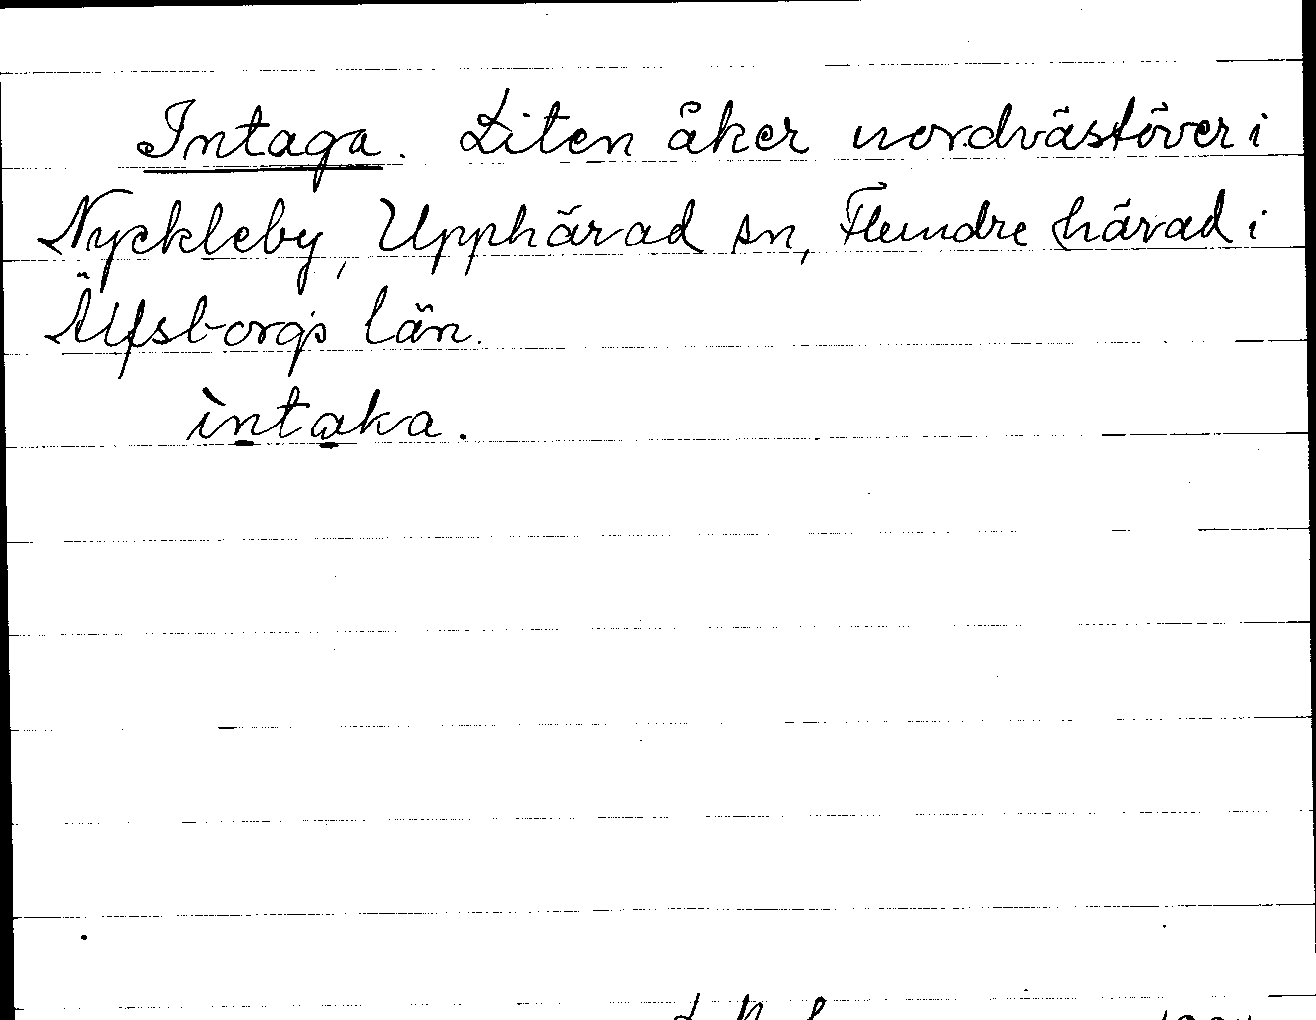 Intaga. Liten åker nordvästöver i
Nyckleby, Upphärad sn, Flundre härad i
Älfsborgs län.
ìntaka.